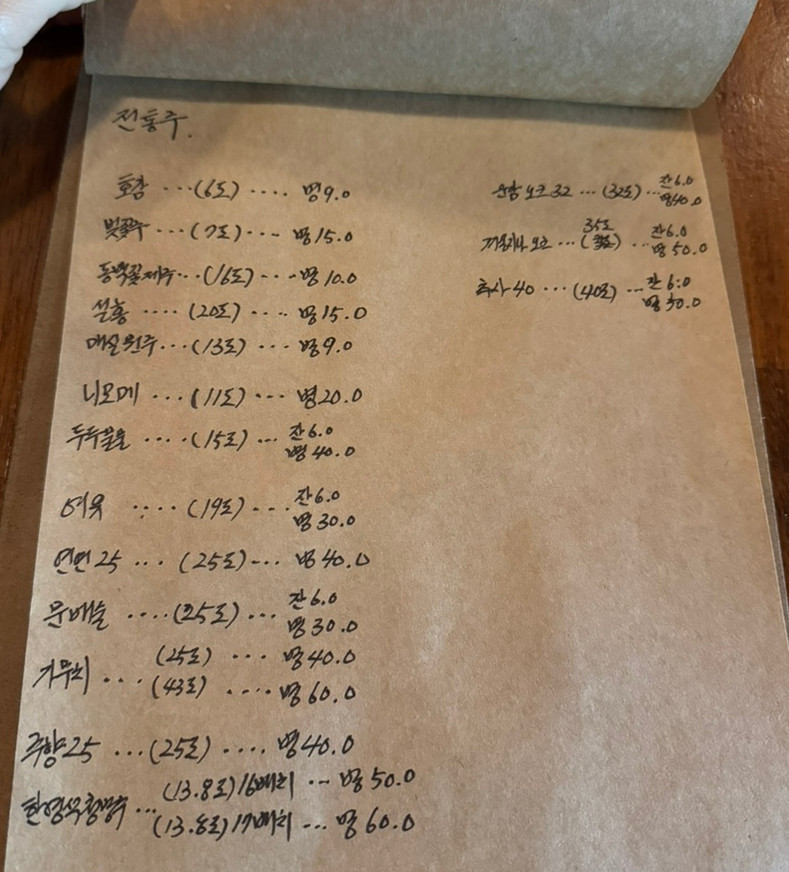 전통주.
호감 ...(6도) .... 병 9.0
벚꽃주 ...(7도) .... 병 15.0
동백꽃제주...(16도) ...병 10.0
설홍 ....(20도) .... 병 15.0
매실원주...(13도) ... 병 9.0
니모메 ...(11도) ... 병 20.0
두두물물 ....(15도) ... 잔 6.0
병 40.0
여유 ....(19도) ... 잔 6.0
병 30.0
연연 25 ...(25도) ... 병 40.0
문배술 ....(25도) ... 잔 6.0
병 30.0
가무치 ...(25도) ... 병 40.0
(43도) .... 병 60.0
주향 25 ...(25도) .... 병 40.0
한영석청명주 ...(13.8도) 16배치 ... 병 50.0
(13.8도) 17배치 ... 병 60.0
오크 32 ...(32도) ... 잔 6.0
병 40.0
오크 ... 35도 ... 잔 6.0
병 50.0
추사 40 ...(40도) ... 잔 6.0